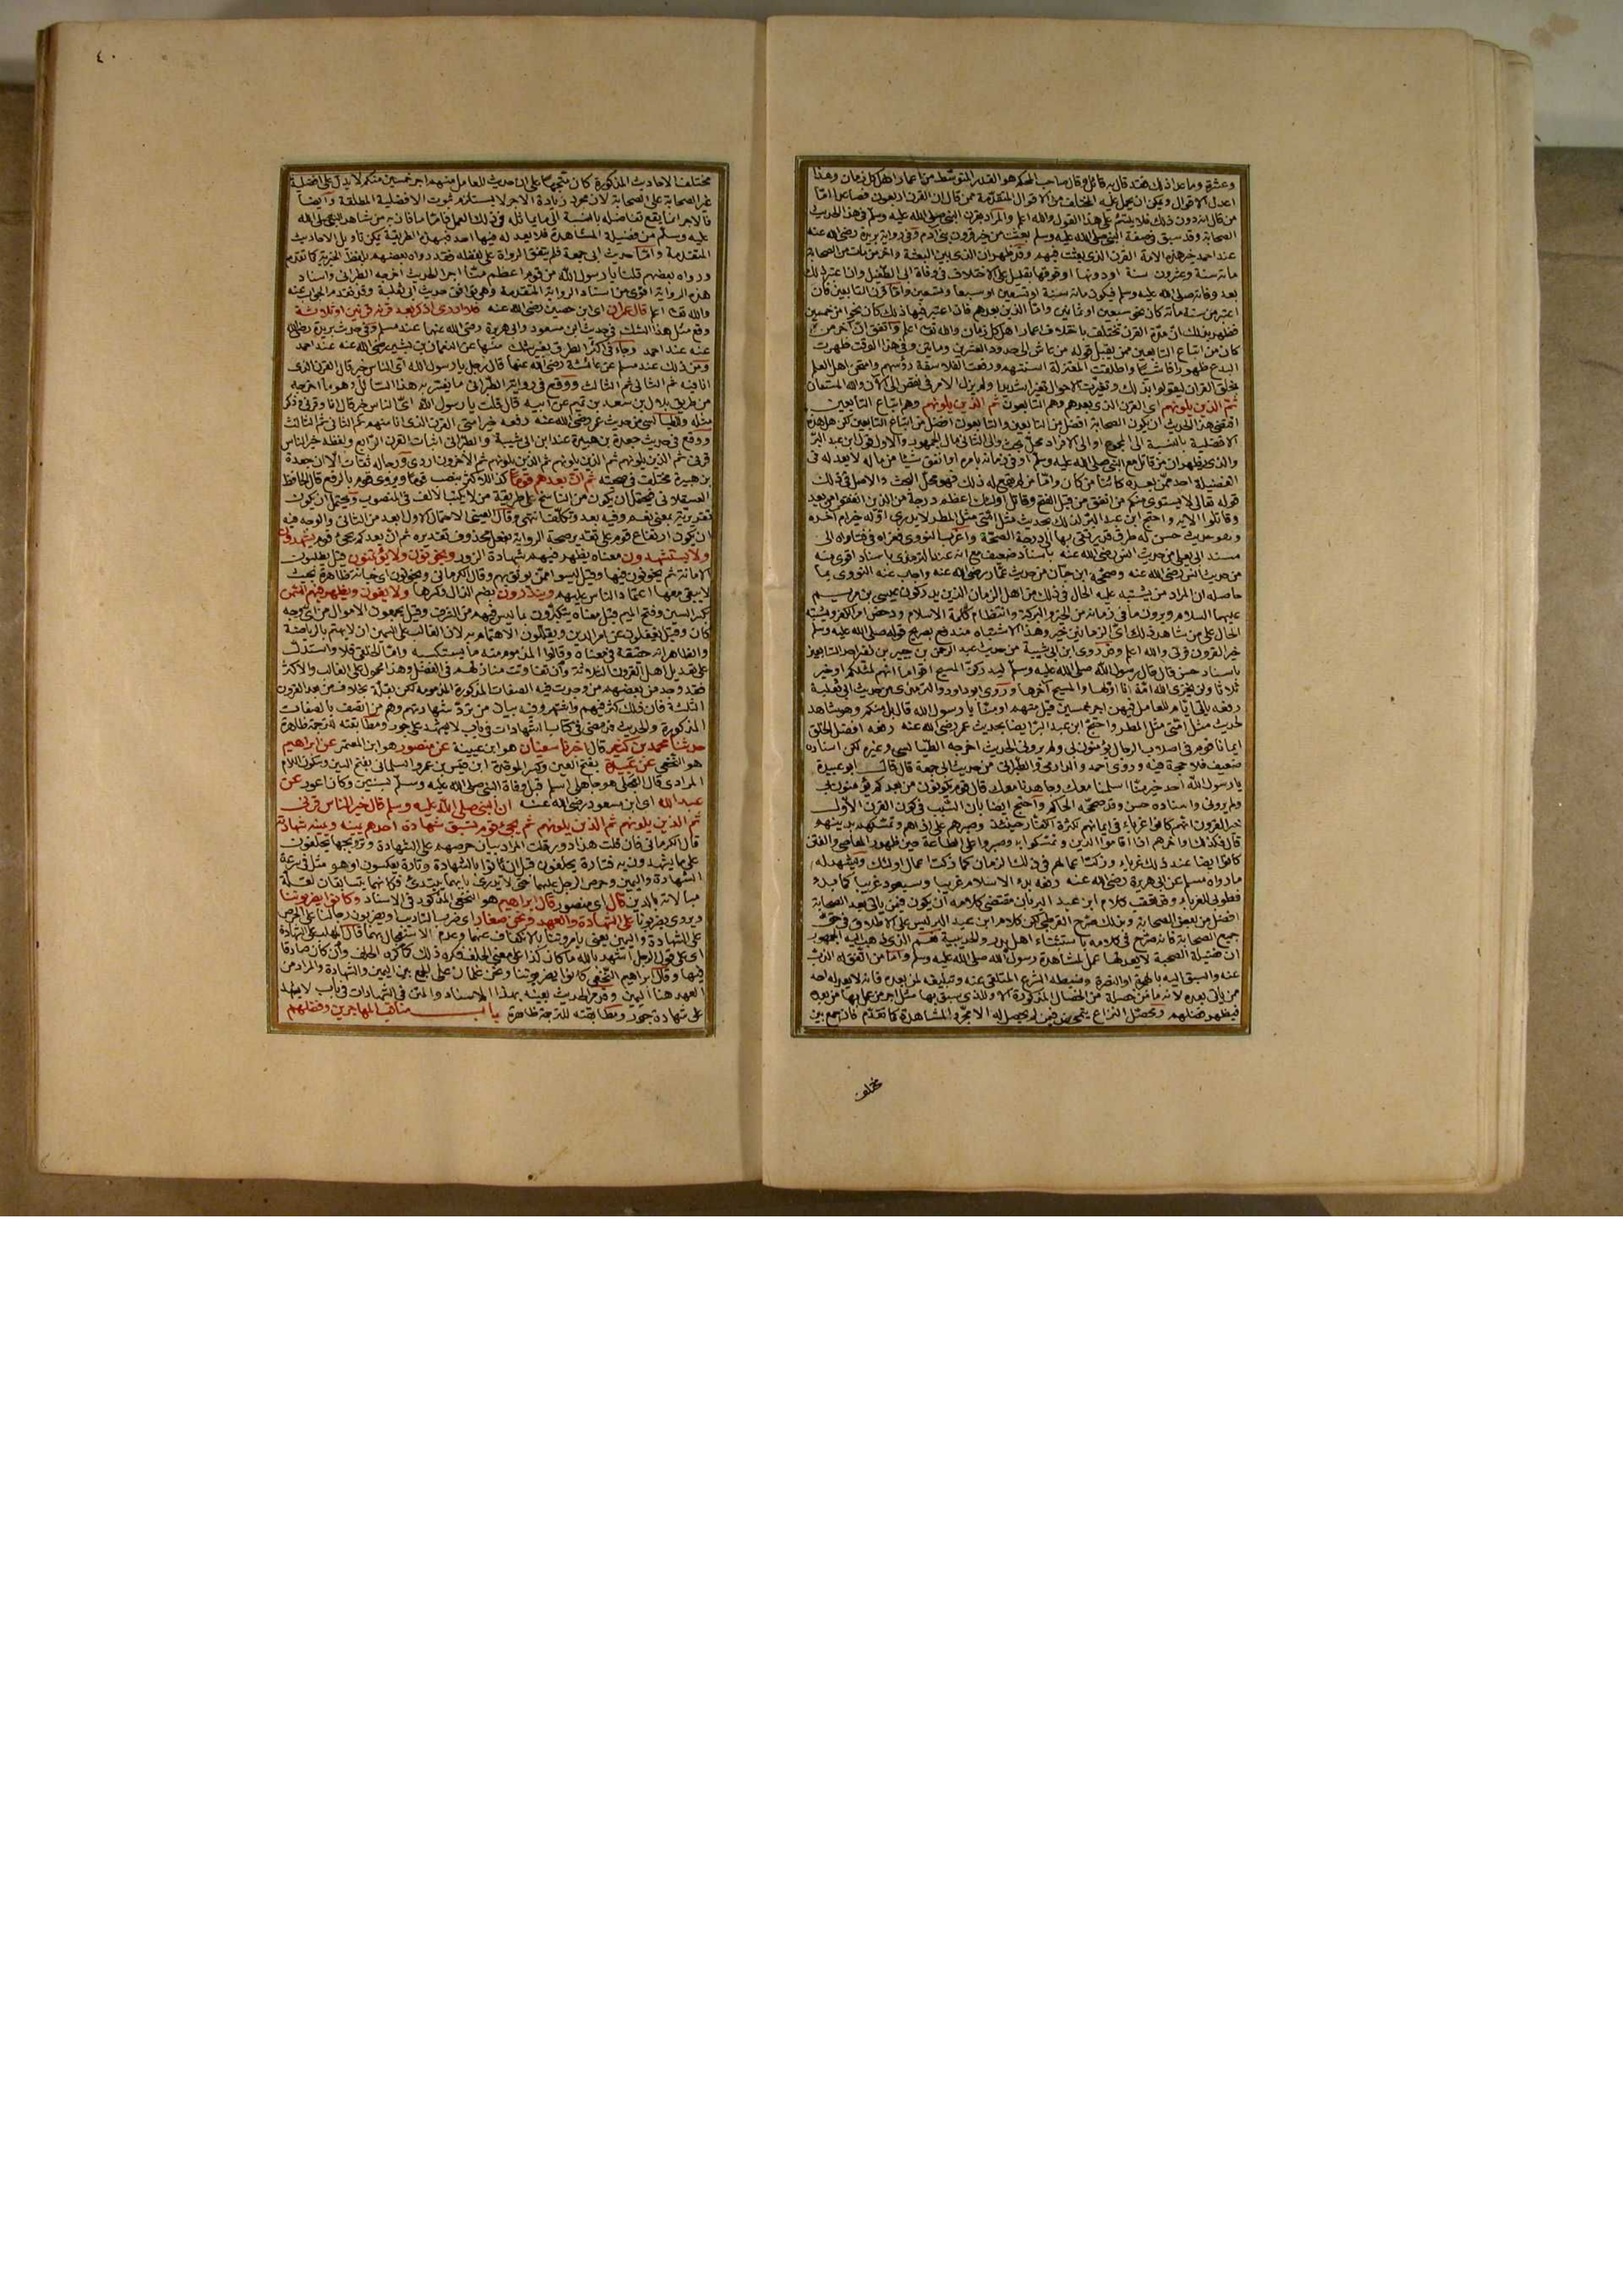 وعشرة وما عدا ذلك فقد قال به قائل وقال صاحب المحكم هو القدر المتوسط من اعمار اهل كل زمان وهذا
اعدل الاقوال ويمكن ان يحمل عليه المختلف من الاقوال المتقدمة ممن قال ان القرن اربعون فصاعدا اما
من قال انه دون ذلك فلا يلتئم على هذا القول والله اعلم والمراد بقرن النبي صلى الله عليه وسلم في هذا الحديث
الصحابة وقد سبق في صفة النبي صلى الله عليه وسلم بعثت من خير قرون بني ادم وفي رواية بريدة رضي الله عنه
عند احمد خير هذه الامة القرن الذي بعثت فيهم وقد ظهر ان الذي بين البعثة واخر من مات من الصحابة
مائة سنة وعشرون سنة او دونها او فوقها بقليل على الاختلاف في وفاة ابي الطفيل وان اعتبر ذلك
بعد وفاته صلى الله عليه وسلم فيكون مائة سنة او تسعين او سبعا وتسعين واما قرن التابعين فان
اعتبر من سنة مائة كان نحو سبعين او ثمانين واما الذين بعدهم فان اعتبر فيها ذلك كان نحوا من خمسين
فظهر بذلك ان مدة القرن تختلف باختلاف اعمار اهل كل زمان والله تعالى اعلم واتفق ان اخر من
كان من اتباع التابعين ممن يقبل قوله من عاش الى حدود العشرين ومايتين وفي هذا الوقت ظهرت
البدع ظهورا فاشيا واطلقت المعتزلة السنتهم ورفعت الفلاسفة رؤسهم وامتحن اهل العلم
بخلق القران ليقولوا بذلك وتغيرت الاحوال تغيرا شديدا ولم يزل الامر في نقص الى الان والله المستعان
ثم الذين يلونهم اي القرن الذي بعدهم وهم التابعون ثم الذين يلونهم وهم اتباع التابعين
اقتضى هذا الحديث ان يكون الصحابة افضل من التابعين والتابعون افضل من اتباع التابعين لكن هل هذه
الافضلية بالنسبة الى المجموع او الى الافراد محل بحث والى الثاني مال الجمهور والاول قول ابن عبد البر
والذي يظهر ان من قاتل مع النبي صلى الله عليه وسلم او في زمانه بامره او انفق شيئا من ماله لا يعدله في
الفضيلة احد ممن بعده كائنا من كان واما من لم يقع له ذلك فهو محل البحث والاصل في ذلك
قوله تعالى لا يستوي منكم من انفق من قبل الفتح وقاتل اولئك اعظم درجة من الذين انفقوا من بعد
وقاتلوا الاية واحتج ابن عبد البر لذلك بحديث مثل امتي مثل المطر لا يدرى اوله خير ام اخره
وهو حديث حسن له طرق قد يرتقي بها الى درجة الصحة واغرب النووي فعزاه في فتاواه الى
مسند ابي يعلى من حديث انس رضي الله عنه باسناد ضعيف مع انه عند الترمذي باسناد اقوى منه
من حديث انس رضي الله عنه وصححه ابن حبان من حديث عمار رضي الله عنه واجاب عنه النووي بما
حاصله ان المراد من يشتبه عليه الحال في ذلك من اهل الزمان الذين يدركون عيسى بن مريم
عليهما السلام ويرون ما في زمانه من الخير والبركة وانتظام كلمة الاسلام ودحض امر الكفر ويشتبه
الحال على من شاهد ذلك اي الزمانين خير وهذا الاشتباه مندفع بصريح قوله صلى الله عليه وسلم
خير القرون قرني والله اعلم وقد روى ابن ابي شيبة من حديث عبد الرحمن بن جبير بن نفير احد التابعين
باسناد حسن قال قال رسول الله صلى الله عليه وسلم ليدركن المسيح اقواما انهم لمثلكم او خير
ثلاثا ولن يخزي الله امة انا اولها والمسيح اخرها وروى ابو داود والترمذي من حديث ابي ثعلبة
رفعه ياتي ايام للعامل فيهن اجر خمسين قيل منهم او منا يا رسول الله قال بل منكم وهو شاهد
لحديث مثل امتي مثل المطر واحتج ابن عبد البر ايضا بحديث عمر رضي الله عنه رفعه افضل الخلق
ايمانا قوم في اصلاب الرجال يؤمنون بي ولم يروني الحديث اخرجه الطيالسي وغيره لكن اسناده
ضعيف فلا حجة فيه وروى احمد والدارمي والطبراني من حديث ابي جمعة قال قال ابو عبيدة
يا رسول الله أحد خير منا اسلمنا معك وجاهدنا معك قال قوم يكونون من بعدكم يؤمنون بي
ولم يروني واسناده حسن وقد صححه الحاكم واحتج ايضا بان السبب في كون القرن الاول
خير القرون انهم كانوا غرباء في ايمانهم لكثرة الكفار حينئذ وصبرهم على اذاهم وتمسكهم بدينهم
قال فكذلك اواخرهم اذا اقاموا الدين وتمسكوا به وصبروا على الطاعة حين ظهور المعاصي والفتن
كانوا ايضا عند ذلك غرباء وزكت اعمالهم في ذلك الزمان كما زكت اعمال اولئك ويشهد له
ما رواه مسلم عن ابي هريرة رضي الله عنه رفعه بدء الاسلام غريبا وسيعود غريبا كما بدء
فطوبى للغرباء وقد تعقب كلام ابن عبد البر بان مقتضى كلامه ان يكون فيمن ياتي بعد الصحابة
افضل من بعض الصحابة وبذلك صرح القرطبي لكن كلام ابن عبد البر ليس على الاطلاق في حق
جميع الصحابة فانه صرح في كلامه باستثناء اهل بدر والحديبية نعم الذي ذهب اليه الجمهور
ان فضيلة الصحبة لا يعدلها عمل لمشاهدة رسول الله صلى الله عليه وسلم واما من اتفق له الذب
عنه والسبق اليه بالهجرة او النصرة وضبط الشرع المتلقى عنه وتبليغه لمن بعده فانه لا يعدله احد
ممن ياتي بعده لانه ما من خصلة من الخصال المذكورة الا وللذي سبق بها مثل اجر من عمل بها من بعده
فيظهر فضلهم ومحصل النزاع يتمحض فيمن لم يحصل له الا مجرد المشاهدة كما تقدم فان جمع بين
مختلف
٤٠
مختلف الاحاديث المذكورة كان متجها على ان حديث للعامل منهم اجر خمسين منكم لا يدل على افضلية
غير الصحابة على الصحابة لان مجرد زيادة الاجر لا يستلزم ثبوت الافضلية المطلقة وايضا
فالاجر انما يقع تفاضله بالنسبة الى ما يماثله في ذلك العمل فاما ما فاز به من شاهد النبي صلى الله
عليه وسلم من فضيلة المشاهدة فلا يعدله فيها احد فبهذه الطريقة يمكن تاويل الاحاديث
المتقدمة واما حديث ابي جمعة فلم يتفق الرواة على لفظه فقد رواه بعضهم بلفظ الخيرية كما تقدم
ورواه بعضهم قلنا يا رسول الله من قوم اعظم منا اجرا الحديث اخرجه الطبراني واسناد
هذه الرواية اقوى من اسناد الرواية المتقدمة وهي توافق حديث ابي ثعلبة وقد تقدم الجواب عنه
والله تعالى اعلم قال عمران اي ابن حصين رضي الله عنه فلا ادري اذكر بعد قرنه قرنين او ثلاثة
وقع مثل هذا الشك في حديث ابن مسعود وابي هريرة رضي الله عنهما عند مسلم وفي حديث بريدة رضي الله
عنه عند احمد وجاء في اكثر الطرق بغير شك منها عن النعمان بن بشير رضي الله عنه عند احمد
ومن ذلك عند مسلم عن عائشة رضي الله عنها قال رجل يا رسول الله اي الناس خير قال القرن الذي
انا فيه ثم الثاني ثم الثالث ووقع في رواية الطبراني ما يفسر به هذا السائل وهو ما اخرجه
من طريق بلال بن سعد بن تميم عن ابيه قال قلت يا رسول الله اي الناس خير قال انا وقرني فذكر
مثله وللطيالسي من حديث عمر رضي الله عنه رفعه خير امتي القرن الذي انا منهم ثم الثاني ثم الثالث
ووقع في حديث جعدة بن هبيرة عند ابن ابي شيبة والطبراني اثبات القرن الرابع ولفظه خير الناس
قرني ثم الذين يلونهم ثم الذين يلونهم ثم الذين يلونهم ثم الاخرون اردى ورجاله ثقات الا ان جعدة
بن هبيرة مختلف في صحبته ثم ان بعدهم قوما كذا للاكثر بنصب قوما ويروى قوم بالرفع قال الحافظ
العسقلاني فيحتمل ان يكون من الناسخ على طريقة من لا يكتب الالف في المنصوب ويحتمل ان يكون
تقريرية بمعنى نعم وفيه بعد وتكلف انتهى وقال العيني الاحتمال الاول ابعد من الثاني والوجه فيه
ان يكون ارتفاع قوم على تقدير صحة الرواية بفعل محذوف تقديره ثم ان بعدكم يجئ قوم يشهدون
ولا يستشهدون معناه يظهر فيهم شهادة الزور ويخونون ولا يؤتمنون قيل يطلبون
الامانة ثم يخونون فيها وقيل ليسوا ممن يوثق بهم وقال الكرماني ويخونون اي خيانة ظاهرة بحيث
لا يبقى معها اعتماد الناس عليهم وينذرون بضم الذال وكسرها ولا يفون ويظهر فيهم السمن
بكسر السين وفتح الميم قيل معناه يتكثرون بما ليس فيهم من الشرف وقيل يجمعون الاموال من اي وجه
كان وقيل يغفلون عن امر الدين ويقللون الاهتمام به لان الغالب على السمين ان لا يهتم بالرياضة
والظاهر انه حقيقة في معناه وقالوا المذموم منه ما يستكسبه واما الخلقي فلا واستدل
على تعديل اهل القرون الثلاثة وان تفاوتت منازلهم في الفضل وهذا محمول على الغالب والاكثر
فقد وجد من بعضهم من وجدت فيه الصفات المذكورة المذمومة لكن بقلة بخلاف من بعد القرون
الثلثة فان ذلك كثر فيهم واشتهر وفيه بيان من ترد شهادتهم وهم من اتصف بالصفات
المذكورة والحديث قد مضى في كتاب الشهادات في باب لا يشهد على جور ومطابقته للترجمة ظاهرة
حدثنا محمد بن كثير قال اخبرنا سفيان هو ابن عيينة عن منصور هو ابن المعتمر عن ابراهيم
هو النخعي عن عبيدة بفتح العين وكسر الموحدة ابن قيس بن عمرو السلماني بفتح السين وسكون اللام
المرادي قال العجلي هو جاهلي اسلم قبل وفاة النبي صلى الله عليه وسلم بسنتين وكان اعور عن
عبد الله اي ابن مسعود رضي الله عنه ان النبي صلى الله عليه وسلم قال خير الناس قرني
ثم الذين يلونهم ثم الذين يلونهم ثم يجئ قوم تسبق شهادة احدهم يمينه ويمينه شهادته
قال الكرماني فان قلت هذا دور قلت المراد بيان حرصهم على الشهادة وترويجها يحلفون
على ما يشهدون به فتارة يحلفون قبل ان ياتوا بالشهادة وتارة يعكسون او هو مثل في سرعة
الشهادة واليمين وحرص الرجل عليهما حتى لا يدري بايهما يبتدئ فكانهما يتسابقان لقلة
مبالاته بالدين قال اي منصور قال ابراهيم هو النخعي المذكور في الاسناد وكانوا يضربوننا
ويروى يضربونا على الشهادة والعهد ونحن صغار اي ضرب التاديب ويضربون رجالنا على الحرص
على الشهادة واليمين يعني يامروننا بالانكفاف عنهما وعدم الاستعجال بهما قال المهلب على الشهادة
اي على قول الرجل اشهد بالله ما كان كذا على معنى الحلف فكره ذلك كما كره الحلف وان كان صادقا
فيها وقال ابراهيم النخعي كانوا يضربوننا ونحن غلمان على الجمع بين اليمين والشهادة والمراد من
العهد هنا اليمين وقد مر الحديث بعينه بهذا الاسناد والمتن في الشهادات في باب لا يشهد
على شهادة جور ومطابقته للترجمة ظاهرة باب مناقب المهاجرين وفضلهم